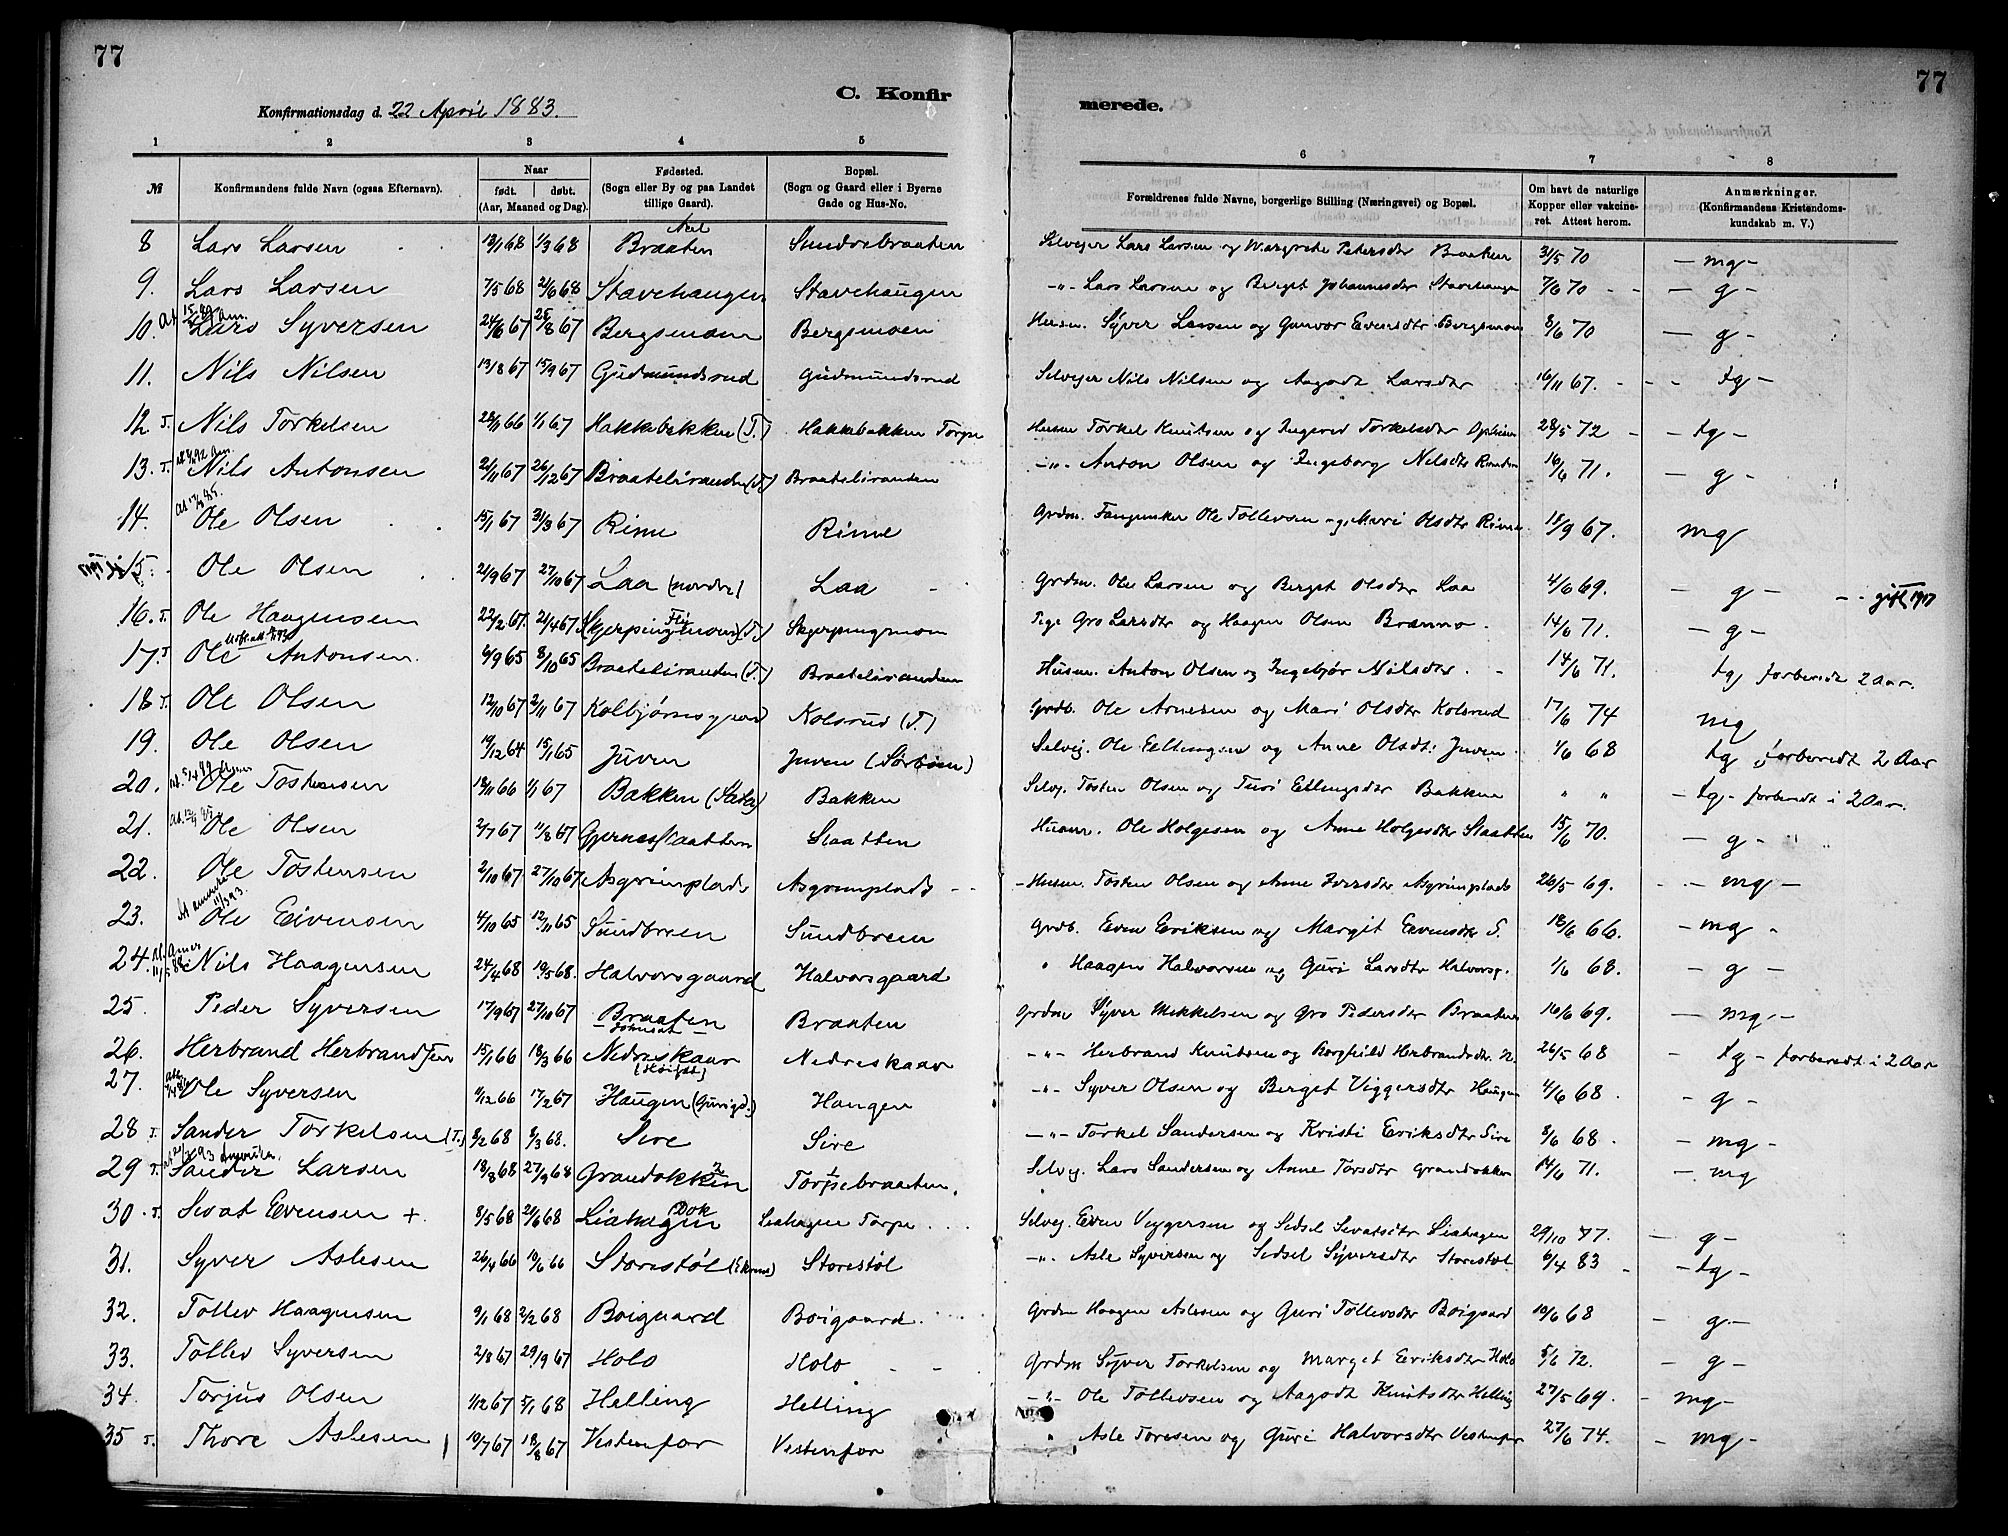 77
77
C. Konfir
merede.
Konfirmationsdag d. 22 April 1883.
1 2 3 4 5 6 7 8
№ Konfirmandens fulde Navn (ogsaa Efternavn). Naar født. døbt. (Aar, Maaned og Dag). Fødested. (Sogn eller By og paa Landet tillige Gaard). Bopæl. (Sogn og Gaard eller i Byerne Gade og Hus-No. Forældrenes fulde Navne, borgerlige Stilling (Næringsvei) og Bopæl. Om havt de naturlige Kopper eller vakcineret. Attest herom. Anmærkninger. (Konfirmandens Kristendomskundskab m. V.)
8 Lars Larsen 13/1 68 1/3 68 Braaten Sundrebraaten Selvejer Lars Larsen og Margrete Petersdr Braaten 31/5 70 - mg -
9. Lars Larsen 7/5 68 21/6 68 Stavehaugen Stavehaugen -"- Lars Larsen og Berget Johannesdr Stavehaugen 7/6 70 - g -
10. Lars Syversen 24/6 67 25/8 67 Bergsmoen Bergsmoen Husm. Syver Larsen og Gunvor Evensdtr Bergsmoen 8/6 70 - g -
11. Nils Nilsen 13/8 67 15/9 67 Gudmundsrud Gudmundsrud Selvejer Nils Nilsen og Aagodt Larsdtr 16/11 67. - tg -
12. T. Nils Torkelsen 28/11 66 1/1 67 Hakkebakken (T.) Hakkebakken Torpe Husm Torkel Knutsen og Ingerid Torkelsdtr 28/5 72 - tg -
13. T. Nils Antonsen 21/11 67 26/12 67 Braateliranden (T.) Braateliranden -"- Anton Olsen og Ingeborg Nilsdtr 16/6 71. - g -
14. Ole Olsen 15/1 67 31/3 67 Rime Rime Grdm. Ole Tollevsen og Mari Olsdtr Rime 18/9 67. mg
15. Ole Olsen 21/9 67 27/10 67 Laa (nordre) Laa Grdm. Ole Larsen og Berget Olsdtr Laa 4/6 69. - g - gift 1917
16. T. Ole Haagensen 22/2 67. 21/4 67 Skjerpingmoen (T.) Skjerpingmoen Pige Gro Larsdtr og Haagen Olsen Brænno 14/6 71. - g -
17. T Ole Antonsen. 6/9 65 8/10 65 Braateliranden (T.) Braateliranden Husm. Anton Olsen og Ingebjør Nilsdtr. 14/6 71. tg forberedt 2 Aar.
18 T. Ole Olsen 12/10 67 2/11 67 Kolbjørnsgaard Kolsrud (T.) Grdb. Ole Arnesen og Mari Olsdtr Kolsrud 17/6 74 mg
19. Ole Olsen 19/12 64 15/1 65 Juven Juven (Sørbøen) Selvej. Ole Ellingsen og Anne Olsdtr Juven 1/6 68 tg forberedt 2 Aar
20. Ole Tostensen 18/11 66 1/1 67 Bakken Bakken Selvej. Tosten Olsen og Turi Ellingsdtr Bakken " " - tg - forberedt i 2 Aar.
21. Ole Olsen 2/7 67 11/8 67 Gjerneslaatten Slaatten Husm. Ole Holgesen og Anne Holgesdtr Slaatten 15/6 70. - g -
22. Ole Tostensen 2/10 67 27/10 67 Asgrimplads Asgrimplads Husm. Tosten Olsen og Anne Iversdtr Asgrimplads 26/5 69. - mg -
23. Ole Eivensen 4/10 65 12/11 65 Sundbreen Sundbreen Grdb. Even Eriksen og Margit Evensdtr S. 18/6 66. - mg -
24 Nils Haagensen 24/4 68 19/5 68. Halvorsgaard Halvorsgaard " Haagen Halvorsen og Guri Larsdtr Halvorsg. 1/6 68. - g -
25. Peder Syversen 17/9 67 27/10 67 Braaten Braaten Grdm Syver Mikkelsen og Gro Pedersdtr Braaten 16/6 69. - mg -
26. Herbrand Herbrandsen 15/1 66 18/3 66 Nedreskaar Nedreskaar -"- Herbrand Knutsen og Borghild Herbrandsdtr. N. 26/5 68 - tg - forberedt i 2 Aar
27. Ole Syversen 11/12 66 17/2 67 Haugen (Gurigd.) Haugen -"- Syver Olsen og Berget Viggersdtr Haugen 4/6 68. - g -
28 T. Sander Torkelsen (T.) 8/2 68 8/3 68. Sire Sire -"- Torkel Sandersen og Kristi Eriksdtr Sire 8/6 68. - mg -
29 T. Sander Larsen 18/8 68 27/9 68 Grandokken Torpebraaten. Selvej. Lars Sandersen og Anne Torsdtr Grandokken 14/6 71. - mg
30. T. Sevat Evensen +. 8/5 68 21/6 68 Liahagen Liahagen Torpe Selvej. Even Viggersen og Sidsel Sevatsdtr Liahagen 29/10 77. - g -
31. Syver Aslesen 26/4 66 10/6 66 Storestøl Storestøl -"- Asle Syversen og Sidsel Syversdtr Storestøl 6/4 83 - tg -
32. Tollev Haagensen 9/1 68 2/2 68 Boigaard Boigaard. Grdm Haagen Aslesen og Guri Tollevsdtr Boigaard 10/6 68 - g -
33. Tollev Syversen 2/8 67 29/9 67 Holo Holo Grdm Syver Torkelsen og Marget Eriksdtr Holo 5/6 72. - g -
34. Torjus Olsen 1/12 67 5/1 68 Helling Helling -"- Ole Tollevsen og Aagodt Knutsdtr Helling 27/5 69. - mg -
35 T. Thore Aslesen 10/7 67 18/8 67 Vestenfor Vestenfor " Asle Toresen og Guri Halvorsdtr Vestenfor 27/6 74. - mg -